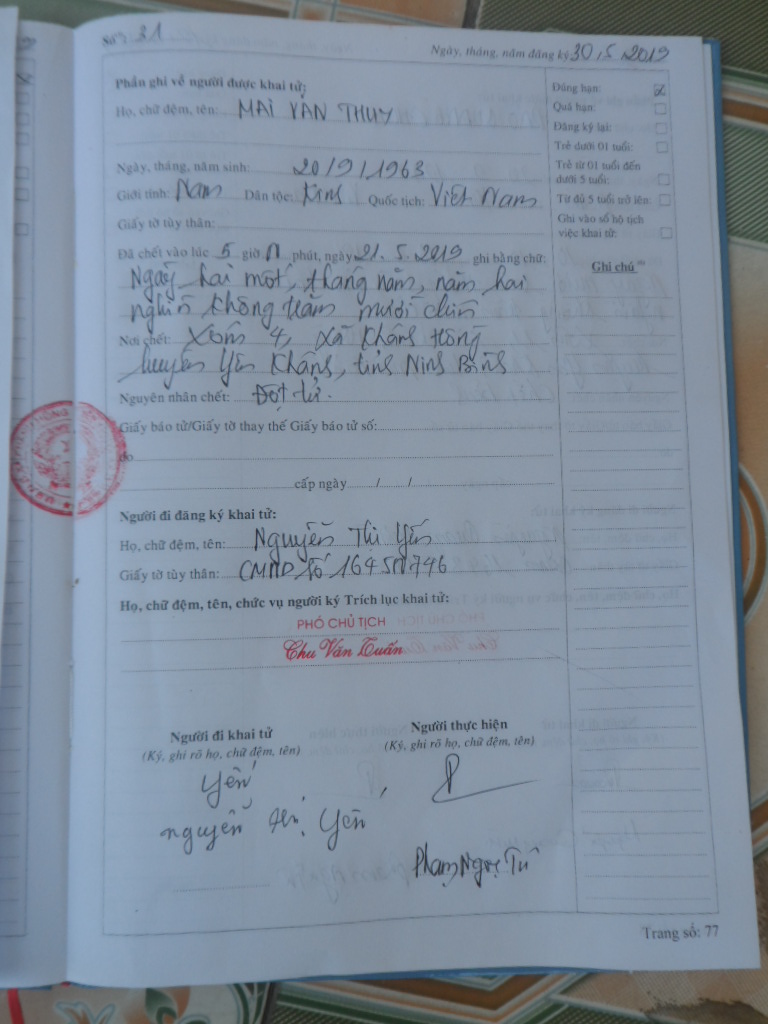 Số: 31 Ngày, tháng, năm đăng ký 30.5.2019
Phần ghi về người được khai tử:
Họ, chữ đệm, tên: MAI VĂN THUY
Ngày, tháng, năm sinh: 20/9/1963
Giới tính: Nam Dân tộc: Kinh Quốc tịch: Việt Nam
Giấy tờ tùy thân:
Đã chết vào lúc 5 giờ phút, ngày 21.5.2019 ghi bằng chữ:
Ngày hai mốt, tháng năm, năm hai
nghìn không trăm mười chín
Nơi chết: Xóm 4, xã Khánh Hồng
huyện Yên Khánh, tỉnh Ninh Bình
Nguyên nhân chết: Đột tử.
Giấy báo tử/Giấy tờ thay thế Giấy báo tử số:
do
cấp ngày / /
Người đi đăng ký khai tử:
Họ, chữ đệm, tên: Nguyễn Thị Yến
Giấy tờ tùy thân: CMND số
Họ, chữ đệm, tên, chức vụ người ký Trích lục khai tử:
PHÓ CHỦ TỊCH
Chu Văn Tuấn
Người đi khai tử
(Ký, ghi rõ họ, chữ đệm, tên)
Yến
nguyễn thị Yến
Người thực hiện
(Ký, ghi rõ họ, chữ đệm, tên)
Phạm Ngọc Tú
Đúng hạn:
Quá hạn:
Đăng ký lại:
Trẻ dưới 01 tuổi:
Trẻ từ 01 tuổi đến
dưới 5 tuổi:
Từ đủ 5 tuổi trở lên:
Ghi vào sổ hộ tịch
việc khai tử:
Ghi chú
Trang số: 77